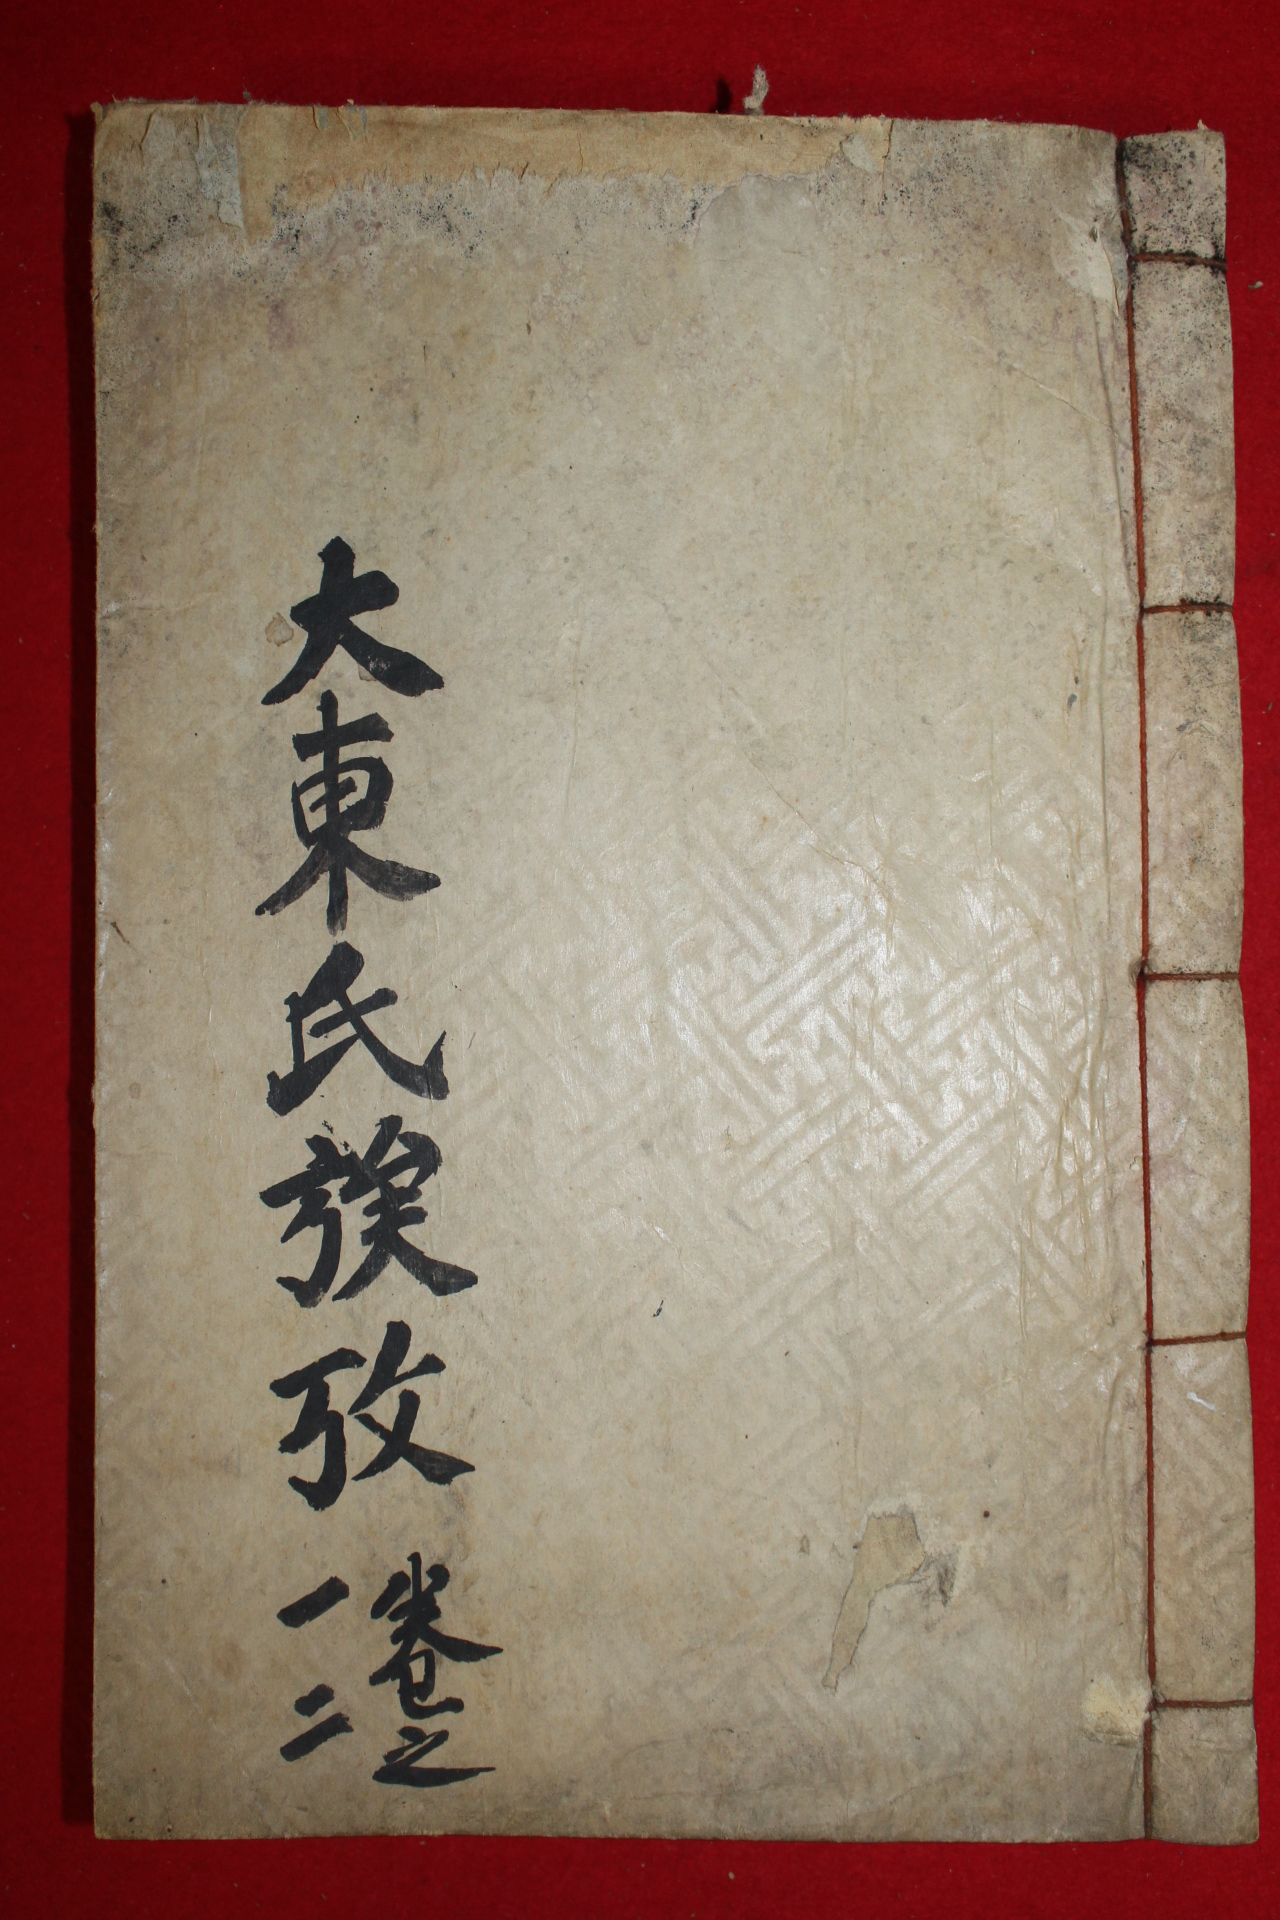 大東氏族攷
卷之
一二